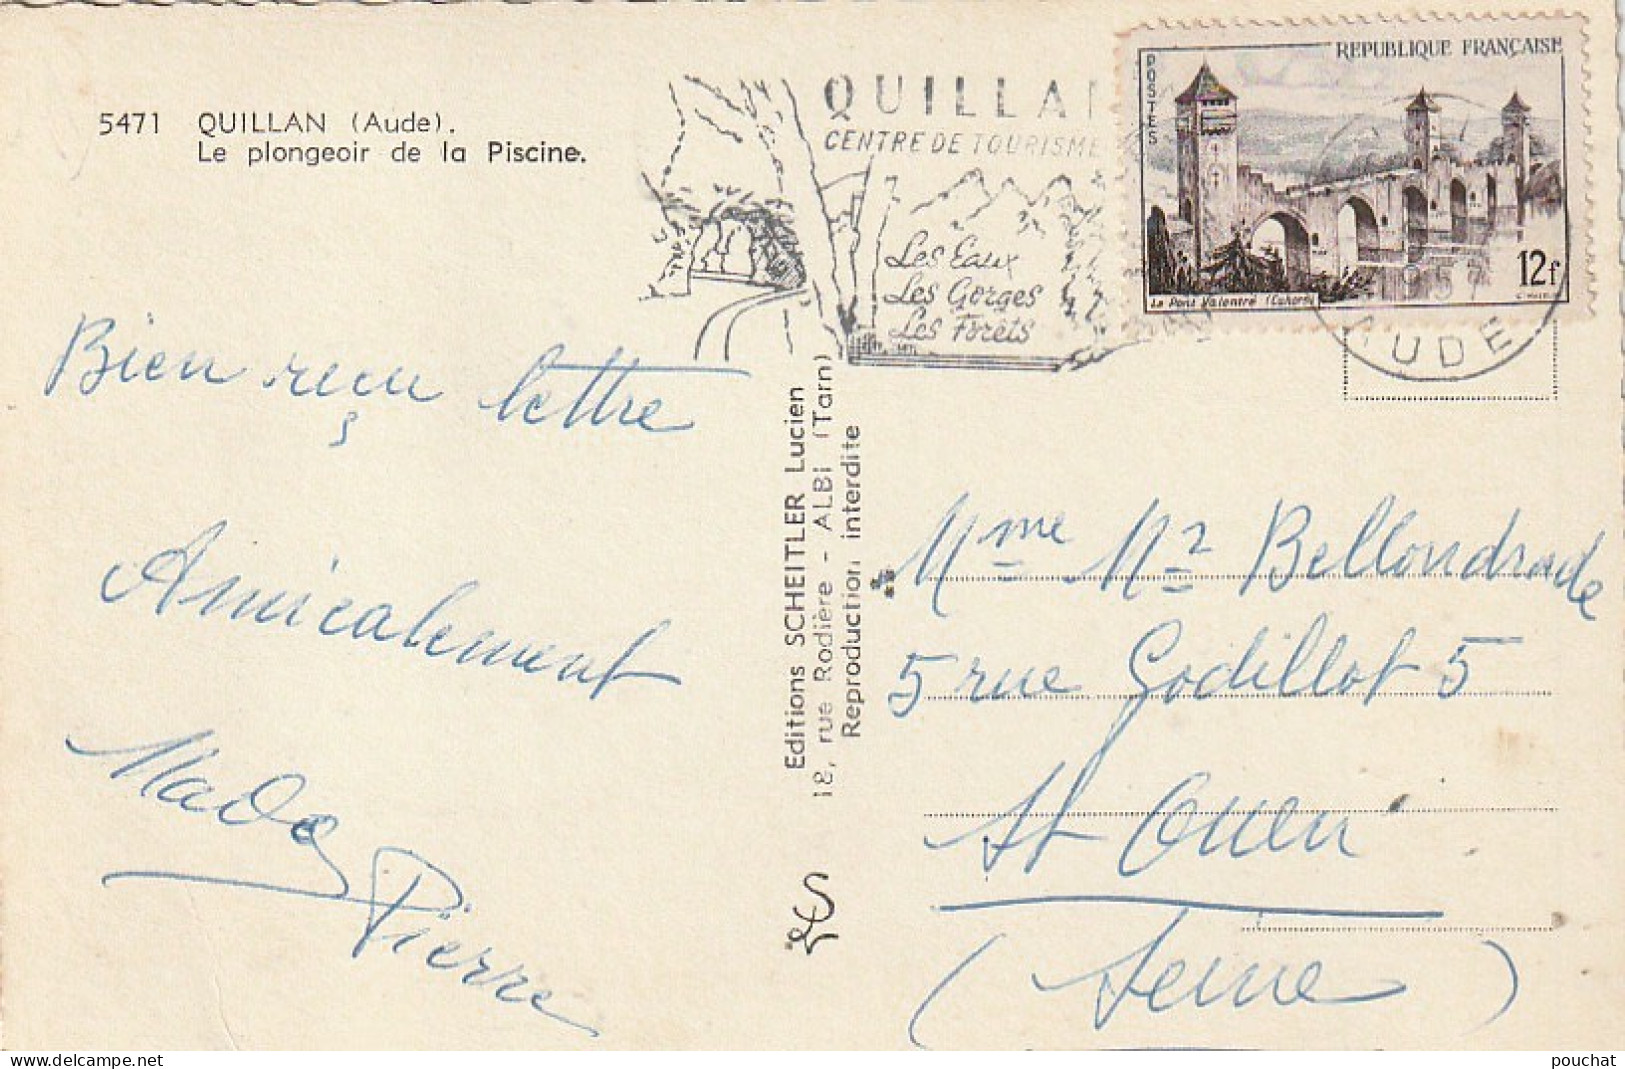 5471 QUILLAN (Aude).
Le plongeoir de la Piscine.
Bien reçu lettre
Amicalement
Mado
Pierre
Editions SCHEITLER Lucien
18, rue Rodière - ALBI (Tarn)
Reproduction interdite
QUILLAN
CENTRE DE TOURISME
Les Eaux
Les Gorges
Les Forêts
REPUBLIQUE FRANÇAISE
POSTES
12f
Le Pont Valentré (Cahors)
1957
AUDE
Mme Mr Bellondrade
5 rue Godillot 5
St Ouen
(Seine)
www.delcampe.net
pouchat